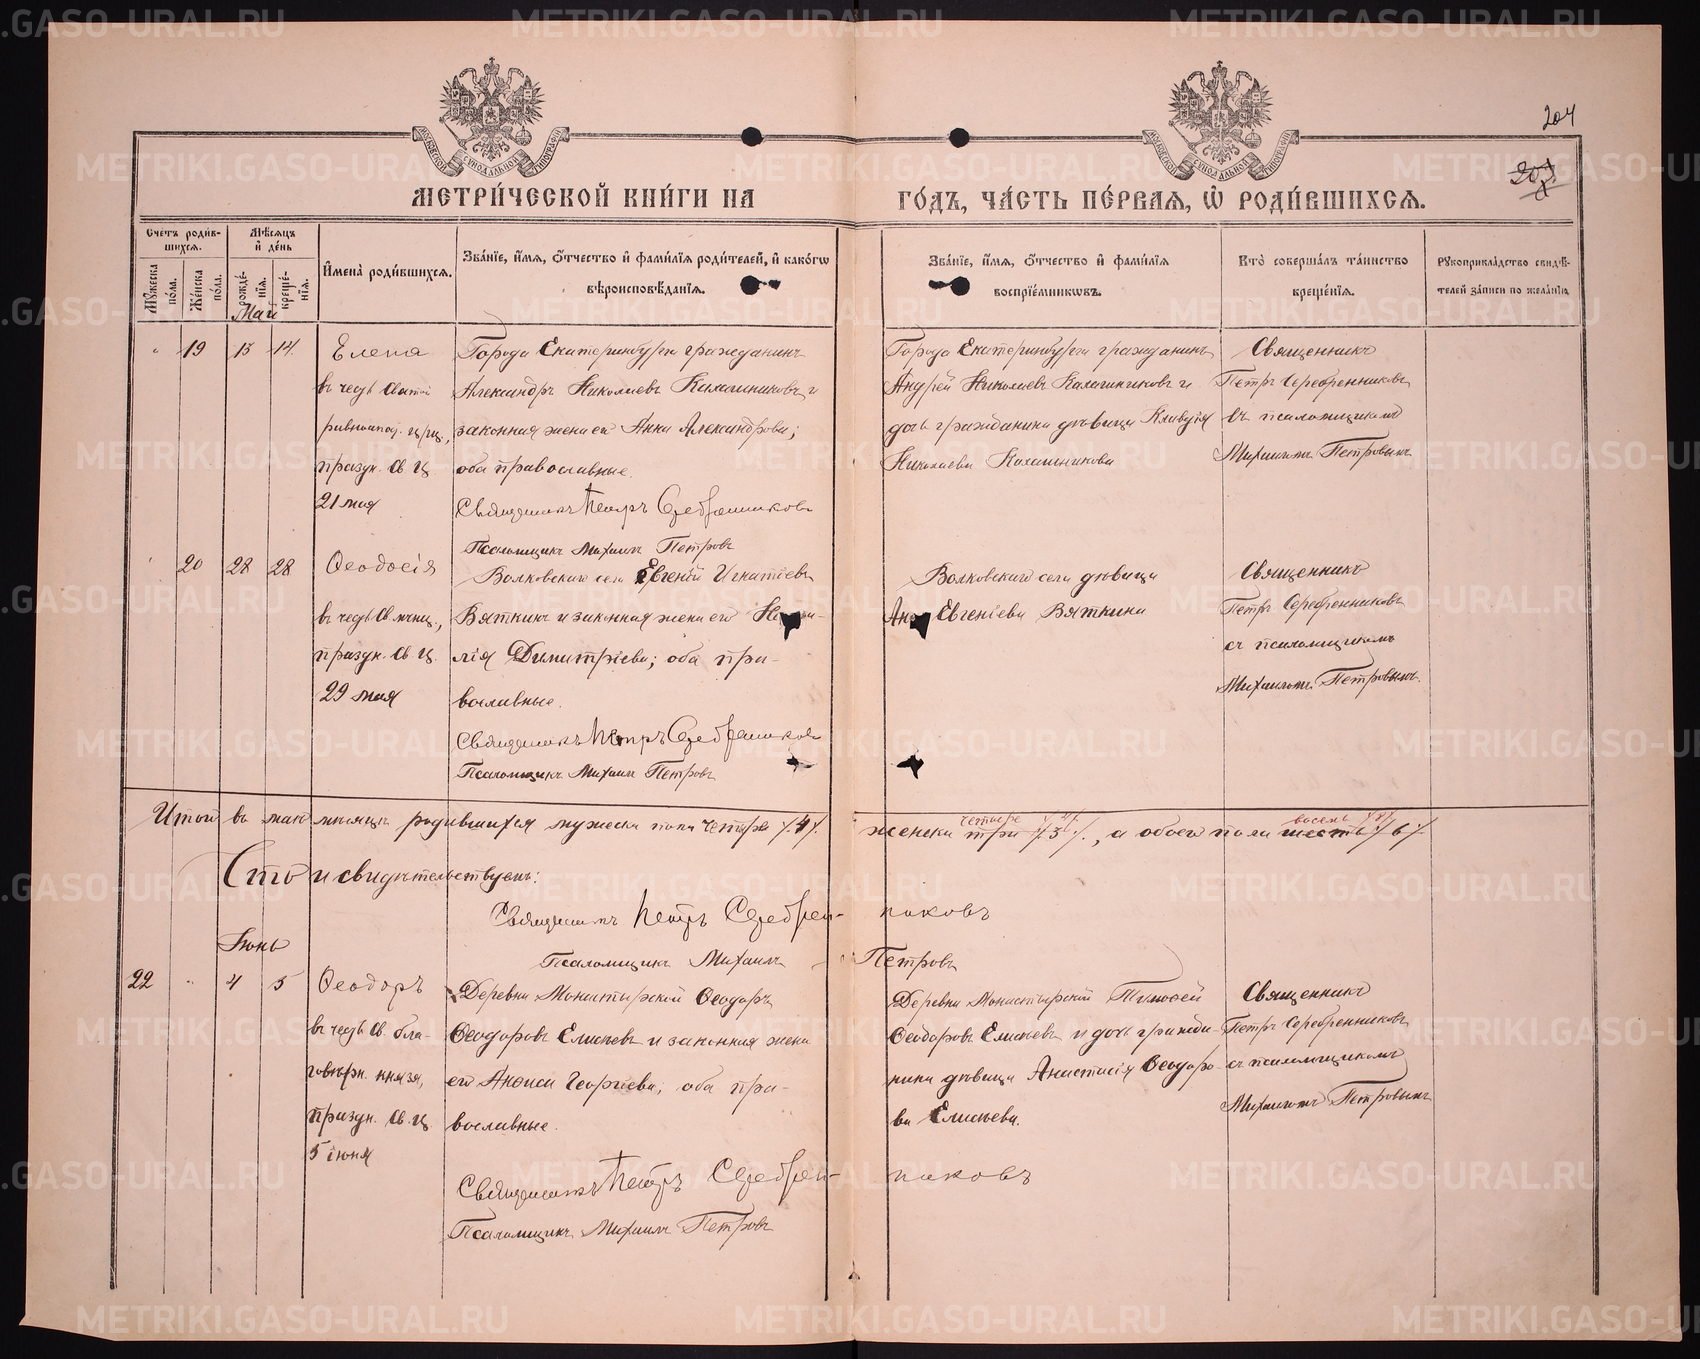 204
МЕТРИ́ЧЕСКОЙ КНИ́ГИ НА ГО́ДЪ, ЧА́СТЬ ПЕ́РВАЯ, Ѡ РОДИ́ВШИХСЯ.
Сче́тъ роди́в-
шихся.
Му́жеска по́ла.
Же́нска по́ла.
Мѣ́сяцъ
и де́нь
рожде́-
нія.
креще́-
нія.
Имена̀ роди́вшихся.
Зва́ніе, и́мя, о́тчество и фами́лія роди́телей, и како́гѡ
вѣроисповѣ́данія.
Зва́ніе, и́мя, о́тчество и фами́лія
воспріе́мникѡвъ.
Кто̀ соверша́лъ та́инство
креще́нія.
Рукоприкла́дство свидѣ́-
телей за́писи по жела́нію
Май
19 13 14
Елена
въ честь святой
равноап. цриц.,
праздн. св. ц.
21 мая
Города Екатеринбурга гражданинъ
Александръ Николаевъ Калашниковъ и
законная жена его Анна Александрова;
оба православные.
Священникъ Петръ Серебренниковъ
Псаломщикъ Михаилъ Петровъ
Города Екатеринбурга гражданинъ
Андрей Николаевъ Калашниковъ и
дочь гражданина дѣвица Клавдія
Николаева Калашникова
Священникъ
Петръ Серебренниковъ
съ псаломщикомъ
Михаиломъ Петровымъ
20 28 28
Ѳеодосія
въ честь св. мчниц.,
праздн. св. ц.
29 мая
Волковскаго села Евгеній Игнатіевъ
Вяткинъ и законная жена его
лія Димитріева; оба пра-
вославные.
Священникъ Петръ Серебренниковъ
Псаломщикъ Михаилъ Петровъ
Волковскаго села дѣвица
Анна Евгеніева Вяткина
Священникъ
Петръ Серебренниковъ
съ псаломщикомъ
Михаиломъ Петровымъ
Итого въ маѣ мѣсяцѣ родившихся мужеска пола четыре /.4/. женска три /.3/., а обоего пола шесть /.6/.
четыре /.4/. восемь /.8/.
Сто и свидѣтельствуемъ:
Священникъ Петръ Серебренниковъ
Псаломщикъ Михаилъ Петровъ
Іюнь
22 4 5
Ѳеодоръ
въ честь св. бла-
говѣрн. князя,
праздн. св. ц.
5 іюня
Деревни Монастырской Ѳеодоръ
Ѳеодоровъ Елисѣевъ и законная жена
его Анѳиса Георгіева; оба пра-
вославные.
Священникъ Петръ Серебренниковъ
Псаломщикъ Михаилъ Петровъ
Деревни Монастырской Тимоѳей
Ѳеодоровъ Елисѣевъ и дочь гражда-
нина дѣвица Анастасія Ѳеодоро-
ва Елисѣева.
Священникъ
Петръ Серебренниковъ
съ псаломщикомъ
Михаиломъ Петровымъ
METRIKI.GASO-URAL.RU